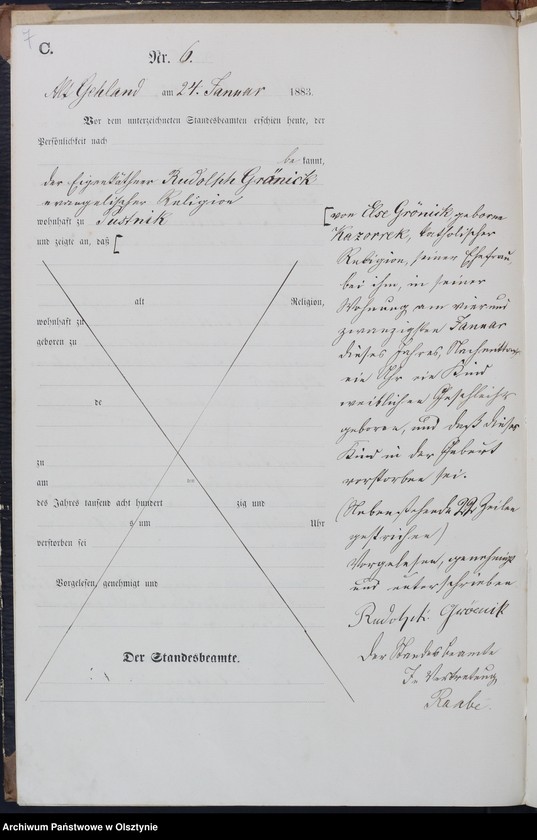 7
C.
Nr. 6.
Alt Gehland am 24. Januar 1883.
Vor dem unterzeichneten Standesbeamten erschien heute, der
Persönlichkeit nach
be kannt,
der Eigenkäthner Rudolph Gränick
evangelischer Religion
wohnhaft zu Sustnik
und zeigte an, daß [
[von Else Grönick, geborne
Kazorrek, katholischer
Religion, seiner Ehefrau,
bei ihm, in seiner
Wohnung am vierund
zwanzigsten Januar
dieses Jahres, Nachmittags
ein Uhr ein Kind
weiblichen Geschlechts
geboren, und daß dieses
Kind in der Geburt
verstorben sei.
(Nebenstehende 22 Zeilen
gestrichen)
Vorgelesen, genehmigt
und unterschrieben
Rudolph Gröenik
Der Standesbeamte
In Vertretung
Raabe.
alt Religion,
wohnhaft zu
geboren zu
de
zu
am
des Jahres tausend acht hundert zig und
s um Uhr
verstorben sei
Vorgelesen, genehmigt und
Der Standesbeamte.
Archiwum Państwowe w Olsztynie